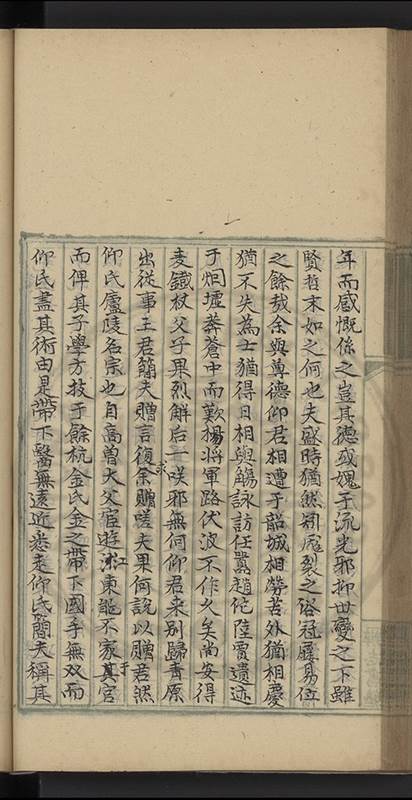 年而感慨係之豈其德或媿于流光邪抑世變之下雖
賢哲末如之何也夫盛時猶然矧崩裂之際冠屨易位
之餘哉余與尊德仰君相遭于韶城相勞苦外猶相慶
猶不失為士猶得日相與觴詠訪任囂趙佗陸賈遺迹
于烟墟莽蒼中而歎揚將軍路伏波不作久矣尚安得
麦鐵杖父子果烈解后一咲邪無何仰君来别歸青原
出從事王君蕳夫贈言復求余贈嗟夫果何說以贈君然
仰氏廬陵名宗也自高曽大父宦遊淛江東髸不家其于宫
而俾其子學方技于餘杭金氏金之帶下國手無双而
仰氏盡其術由是帶下醫無遠近悉走仰氏蕳夫稱其